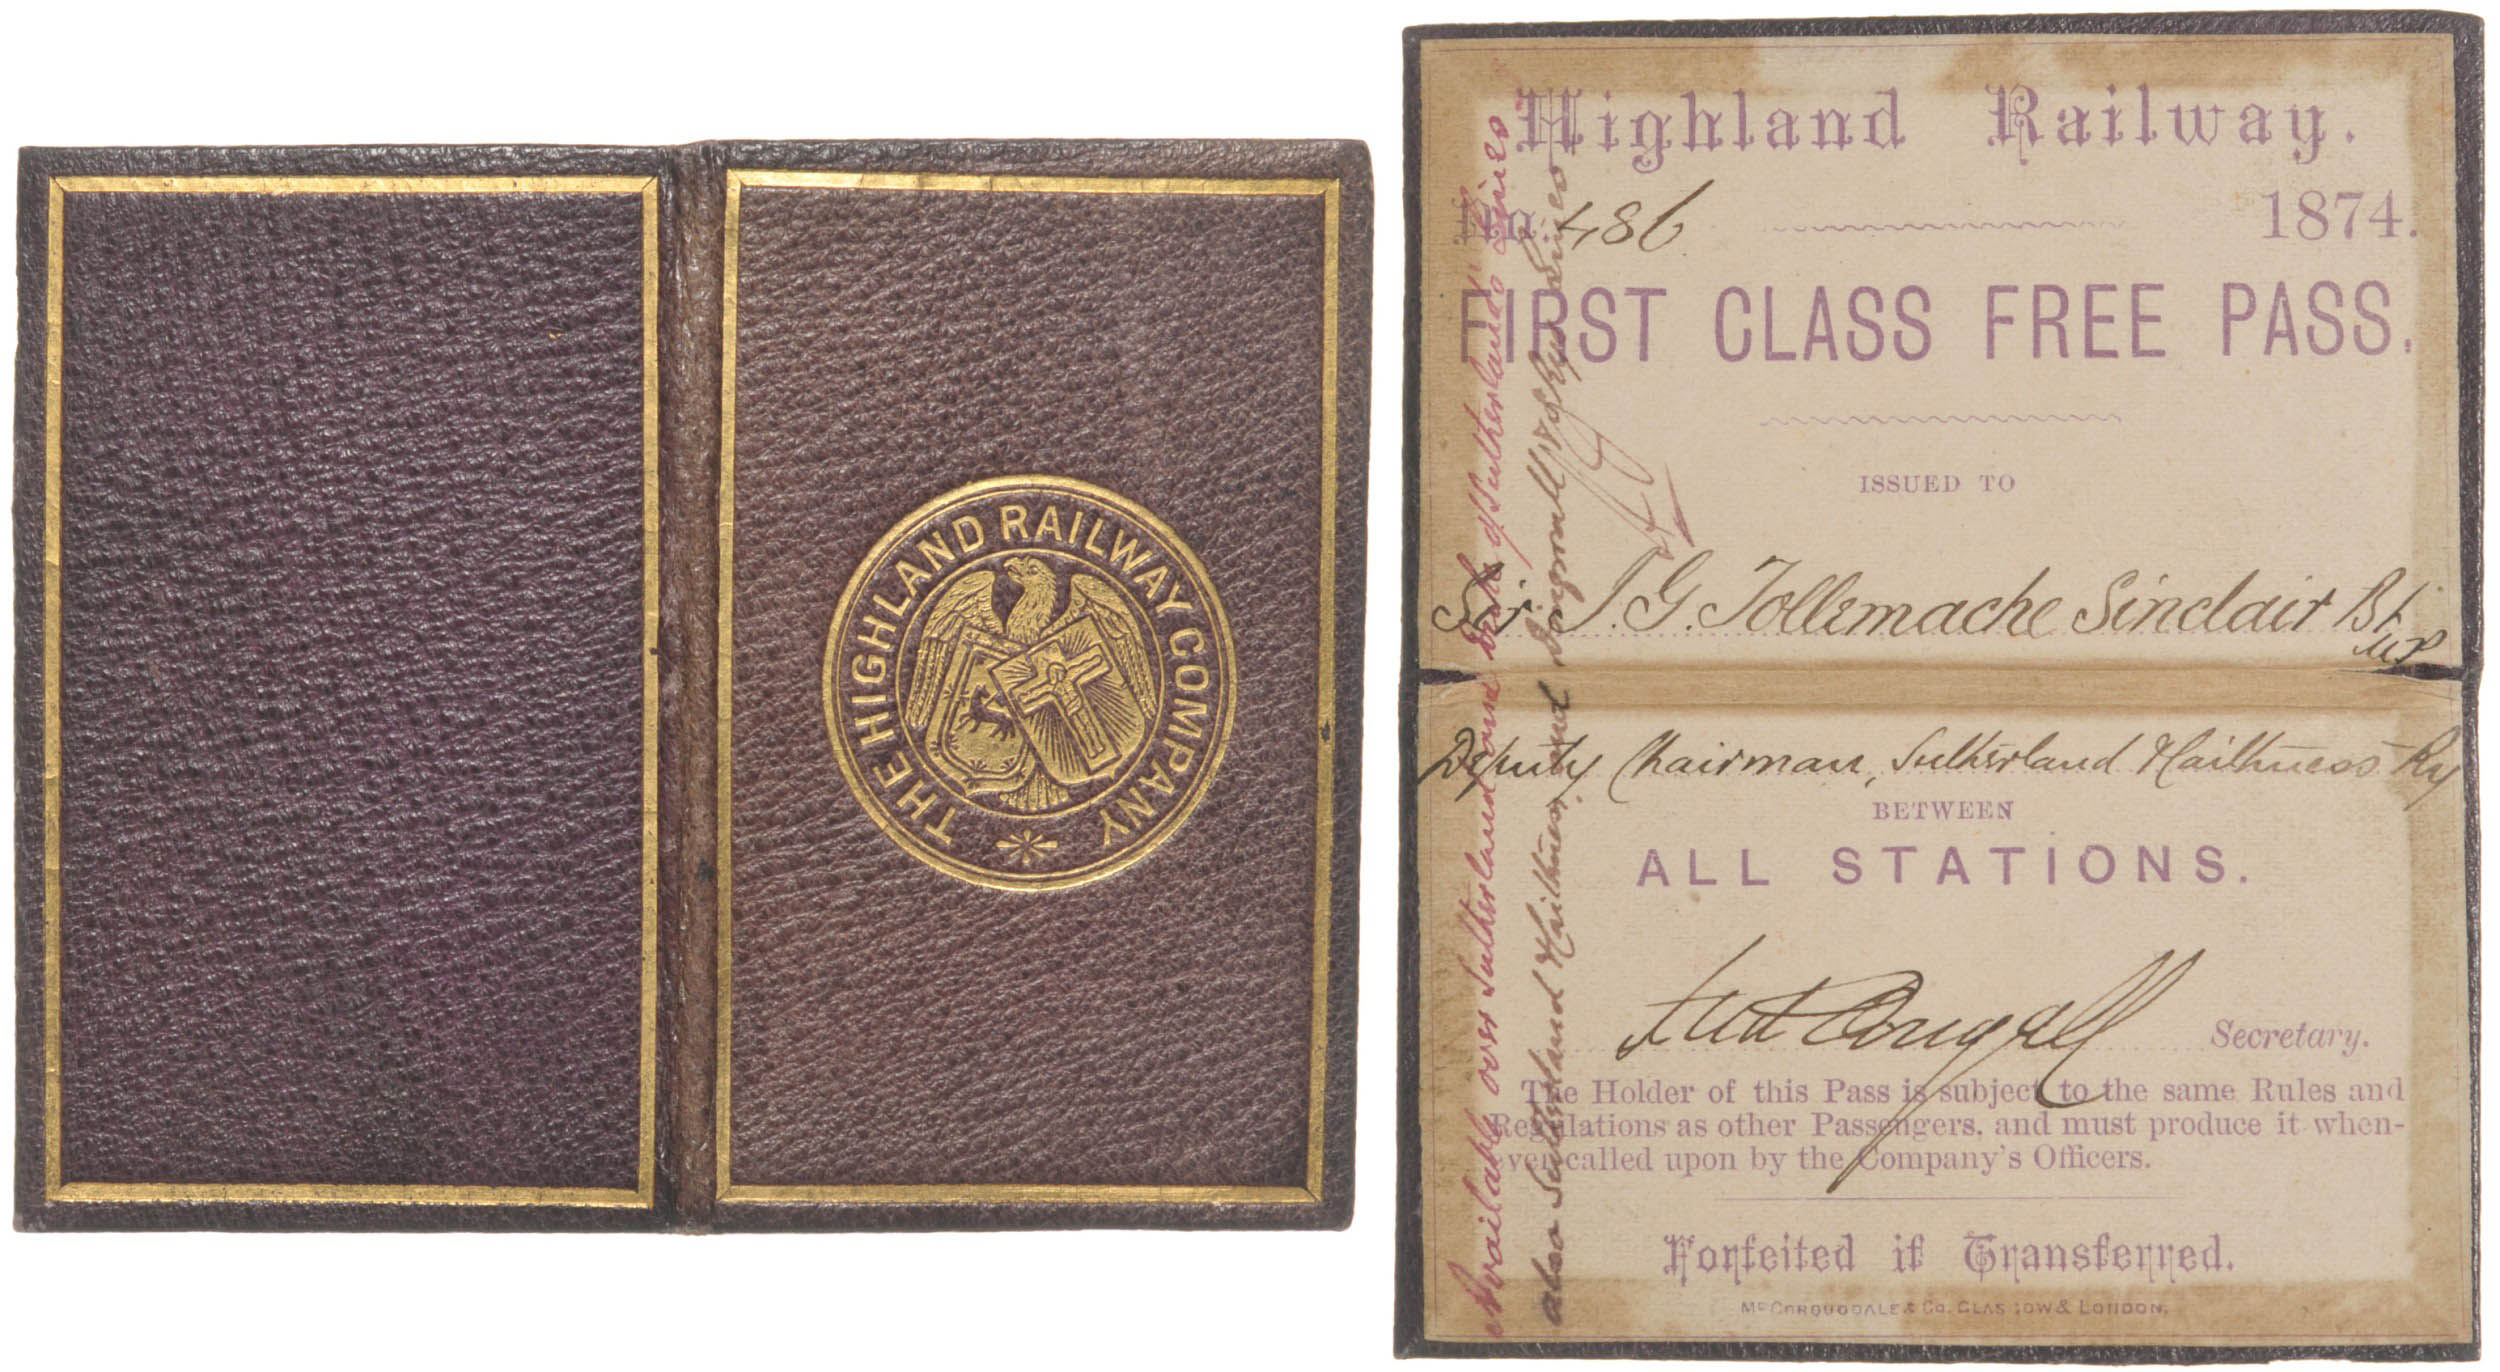 THE HIGHLAND RAILWAY COMPANY
Highland Railway.
No. 486 1874.
FIRST CLASS FREE PASS.
ISSUED TO
Sir J. G. Tollemache Sinclair Bt.
MP
Deputy Chairman, Sutherland & Caithness Ry
BETWEEN
ALL STATIONS.
And Dougall Secretary.
The Holder of this Pass is subject to the same Rules and
Regulations as other Passengers, and must produce it when-
ever called upon by the Company's Officers.
Forfeited if Transferred.
McCORQUODALE & Co. GLASGOW & LONDON.
Available over Sutherland and Duke of Sutherlands Lines
also Sutherland & Caithness, and Dingwall & Skye Lines